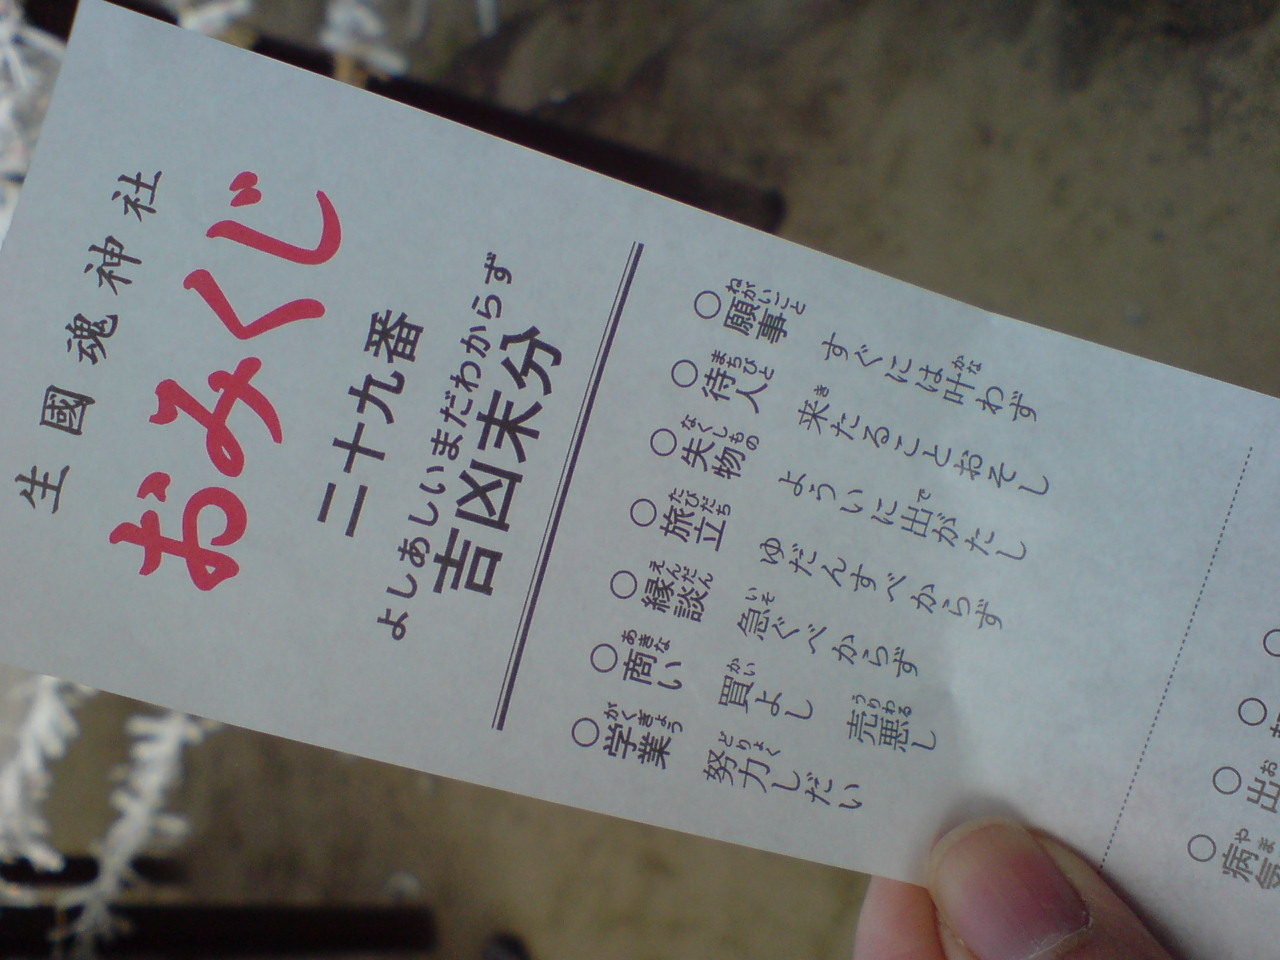 生國魂神社
おみくじ
二十九番
よしあしいまだわからず
吉凶未分
○願事 ねがいごと すぐには叶わず かな
○待人 まちびと 来たることおそし き
○失物 なくしもの よういに出がたし で
○旅立 たびだち ゆだんすべからず
○縁談 えんだん 急ぐべからず いそ
○商い あきな 買よし かい 売悪し うりわる
○学業 がくぎょう 努力しだい どりょく
○出 お
○病気 やま